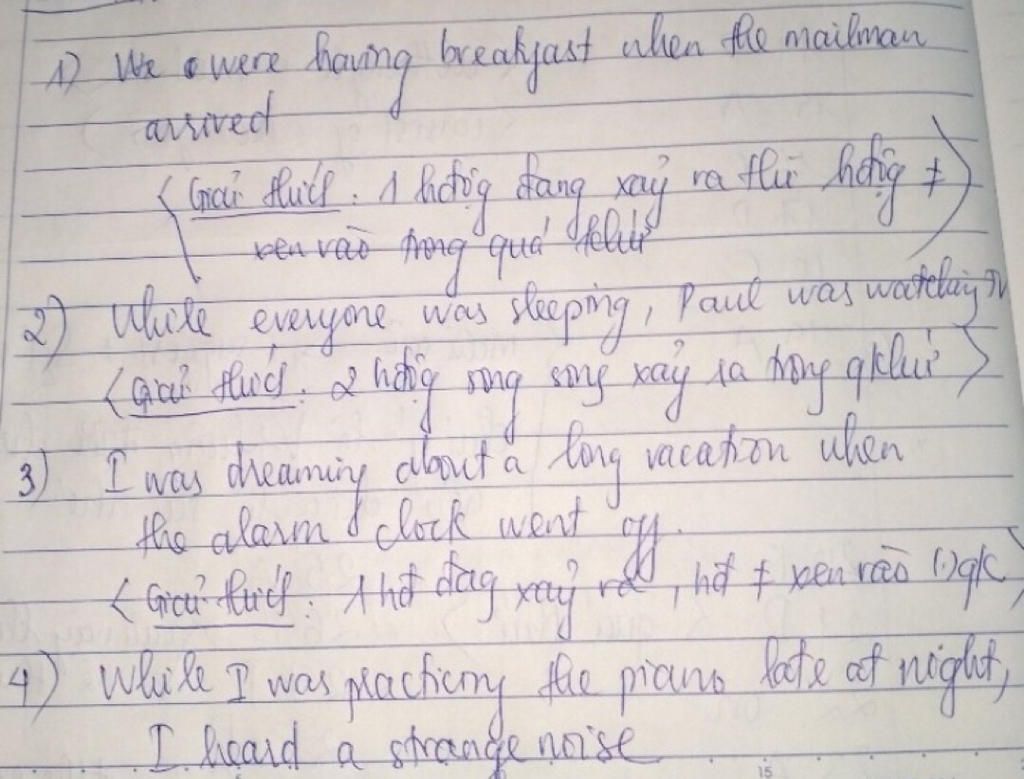 1) We were having breakfast when the mailman
arrived
< Giải thích : 1 hđộg đang xảy ra thì hđộg ≠
xen vào trong quá khứ >
2) While everyone was sleeping, Paul was watching TV
< Giải thích : 2 hđộg song song xảy ra trong qkhứ >
3) I was dreaming about a long vacation when
the alarm clock went off.
< Giải thích : 1 hđ đag xảy ra , hđ ≠ xen vào (.) qk
4) While I was practicing the piano late at night,
I heard a strange noise
15